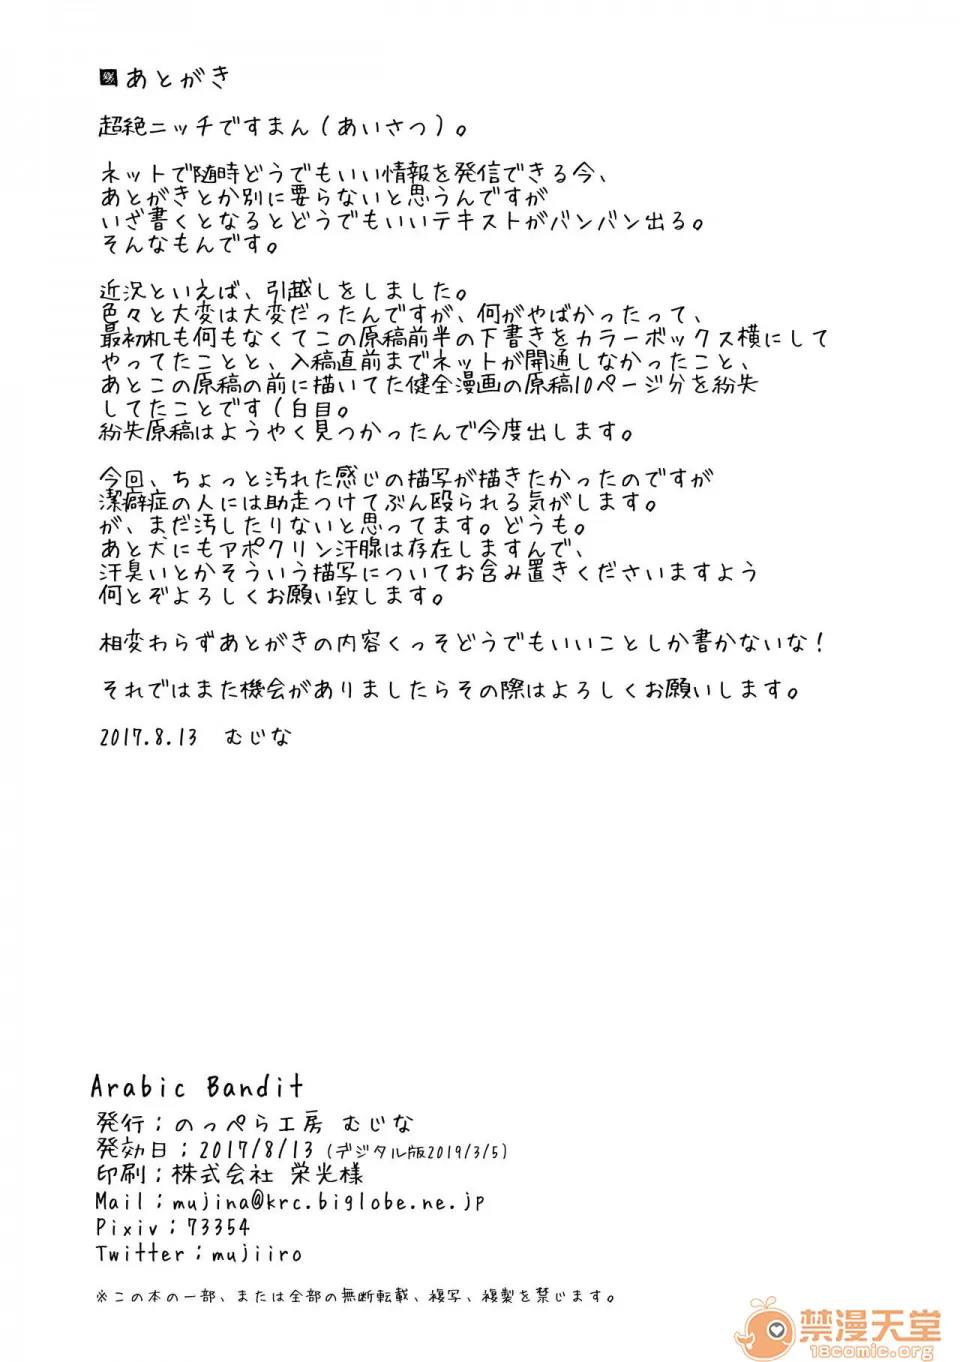 あとがき
超絶ニッチですまん(あいさつ)。
ネットで随時どうでもいい情報を発信できる今、
あとがきとか別に要らないと思うんですが
いざ書くとなるとどうでもいいテキストがバンバン出る。
そんなもんです。
近況といえば、引越しをしました。
色々と大変は大変だったんですが、何がやばかったって、
最初机も何もなくてこの原稿前半の下書きをカラーボックス横にして
やってたことと、入稿直前までネットが開通しなかったこと、
あとこの原稿の前に描いてた健全漫画の原稿10ページ分を紛失
してたことです(白目。
紛失原稿はようやく見つかったんで今度出します。
今回、ちょっと汚れた感じの描写が描きたかったのですが
潔癖症の人には助走つけてぶん殴られる気がします。
が、まだ汚したりないと思ってます。どうも。
あと犬にもアポクリン汗腺は存在しますんで、
汗臭いとかそういう描写についてお含み置きくださいますよう
何とぞよろしくお願い致します。
相変わらずあとがきの内容くっそどうでもいいことしか書かないな!
それではまた機会がありましたらその際はよろしくお願いします。
2017.8.13 むじな
Arabic Bandit
発行:のっぺら工房 むじな
発効日:2017/8/13(デジタル版2019/3/5)
印刷:株式会社 栄光様
Mail:mujina@krc.biglobe.ne.jp
Pixiv:73354
Twitter:mujiiro
※この本の一部、または全部の無断転載、複写、複製を禁じます。
禁漫天堂
18comic.org